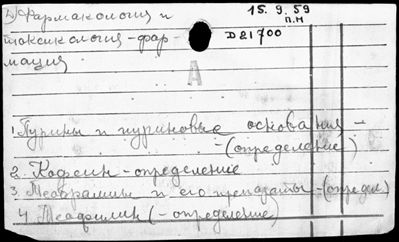 Фармакология и
15. 9. 59
п.м
токсикология - фар-
D21700
мация
А
1. Пурины и пуриновые основания -
- (определение)
2. Кофеин - определение
3. Теобромины и его препараты - (определ)
4 Теофилин (- определение)